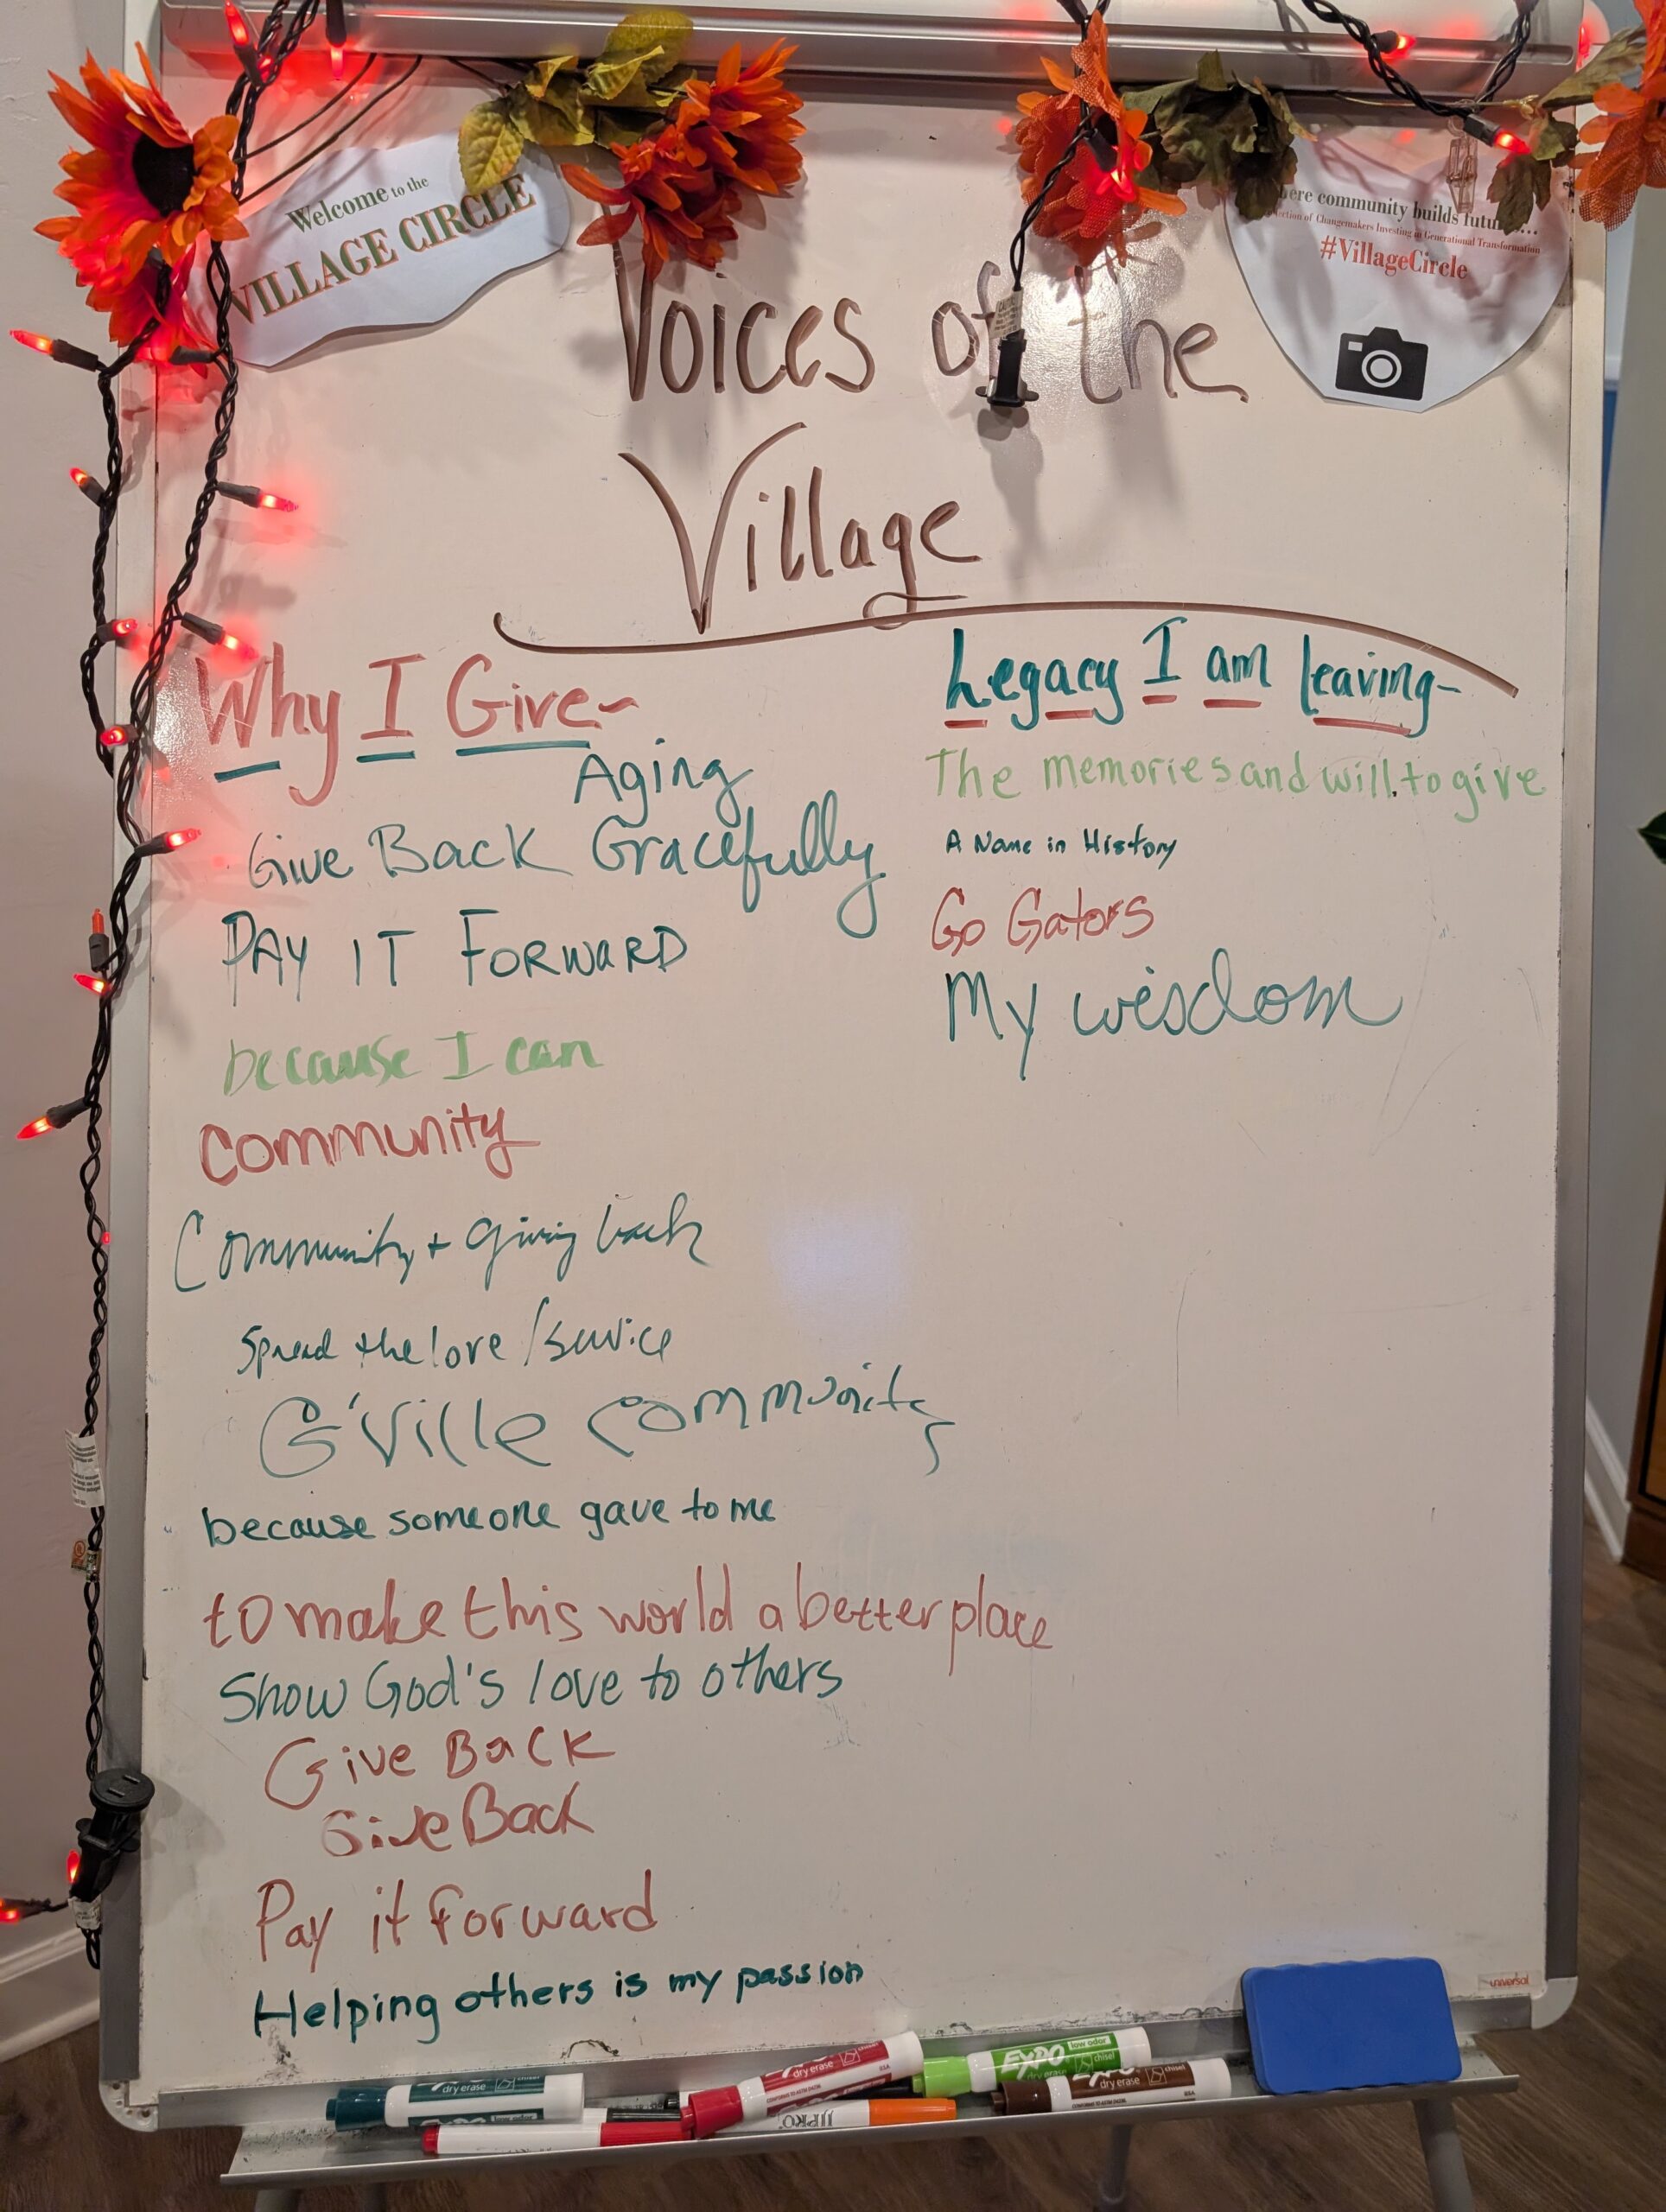 Welcome to the
VILLAGE CIRCLE
here community builds futu
ection of Changemakers Investing in Generational Transformation
#VillageCircle
Voices of the
Village
Why I Give~
Aging
Give Back Gracefully
PAY IT FORWARD
because I can
Community
Community + giving back
Spread the love / service
G'Ville Community
because someone gave to me
to make this world a better place
Show God's love to others
Give Back
Give Back
Pay it forward
Helping others is my passion
Legacy I am leaving-
The memories and will to give
A Name in History
Go Gators
My wisdom
universal
dry erase chisel
EXPO low odor
dry erase chisel
EXPO low odor
dry erase chisel
dry erase chisel
JJPRO